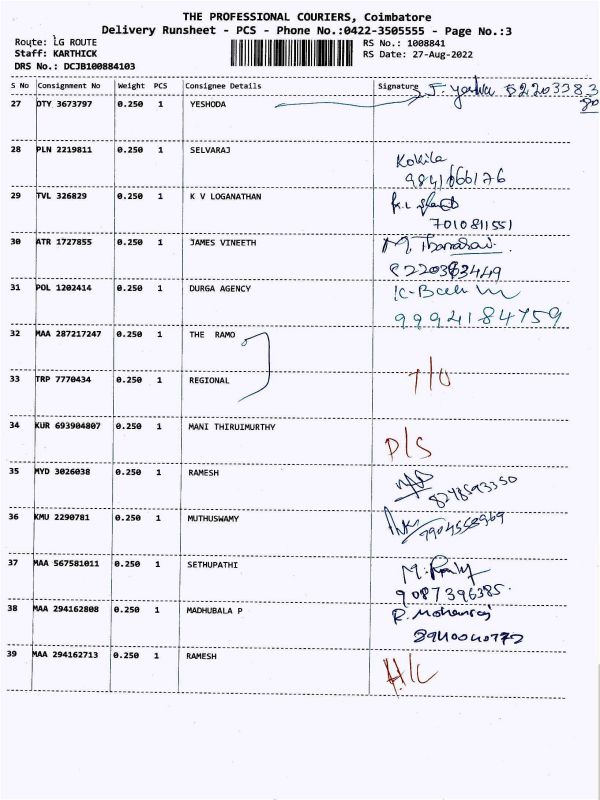 THE PROFESSIONAL COURIERS, Coimbatore
Delivery Runsheet - PCS - Phone No.:0422-3505555 - Page No.:3
Route: LG ROUTE
Staff: KARTHICK
DRS No.: DCJB100884103
RS No.: 1008841
RS Date: 27-Aug-2022
S No Consignment No Weight PCS Consignee Details Signature
27 DTY 3673797 0.250 1 YESHODA
28 PLN 2219811 0.250 1 SELVARAJ Kokila
9841066176
29 TVL 326829 0.250 1 K V LOGANATHAN
7010811551
30 ATR 1727855 0.250 1 JAMES VINEETH
31 POL 1202414 0.250 1 DURGA AGENCY
9994184759
32 MAA 287217247 0.250 1 THE RAMO
33 TRP 7770434 0.250 1 REGIONAL
34 KUR 693904807 0.250 1 MANI THIRUIMURTHY P/S
35 MYD 3026038 0.250 1 RAMESH
8248593350
36 KMU 2290781 0.250 1 MUTHUSWAMY
37 MAA 567581011 0.250 1 SETHUPATHI
9087396385
38 MAA 294162808 0.250 1 MADHUBALA P R. Mohanraj
39 MAA 294162713 0.250 1 RAMESH